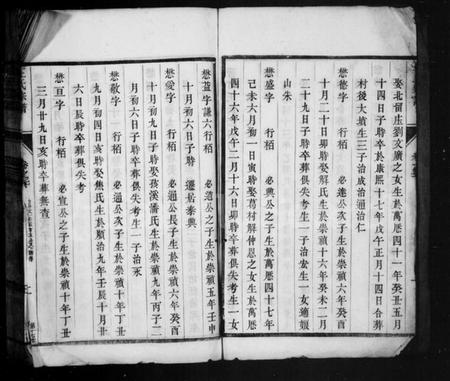 娶北留庄劉文廣之女生於萬厯四十一年癸丑五月
十四日子時卒於康熙十七年戊午正月十四日合葬
村後大墳生三子治成治通治仁
懋德字 行栢 必進公次子生於崇禎六年癸酉
十月二十日卯時娶解氏生於崇禎十六年癸未二月
二十九日子時卒葬俱失考生一子治宏生一女適姬
山朱
懋盛字 行栢 必興公之子生於萬厯四十七年
己未六月初一日寅時娶葛村解仲恩之女生於萬厯
四十六年戊午二月十六日卯時卒葬俱失考生一女
懋益字謙六行栢 必通公之子生於崇禎五年壬申
十月初六日子時 遷居泰興
懋愛字 行栢 必通公長子生於崇禎六年癸酉
十月初九日子時娶孩溪潘氏生於崇禎九年丙子二
月初六日子時卒葬俱失考生一子治永
懋敬字 行栢 必通公次子生於崇禎十年丁丑
九月初四日丑時娶焦氏生於順治九年壬辰十月廿
六日辰時卒葬俱失考
懋亘字 行栢 必宣公之子生於崇禎十年丁丑
三月廿九日亥時卒葬無查